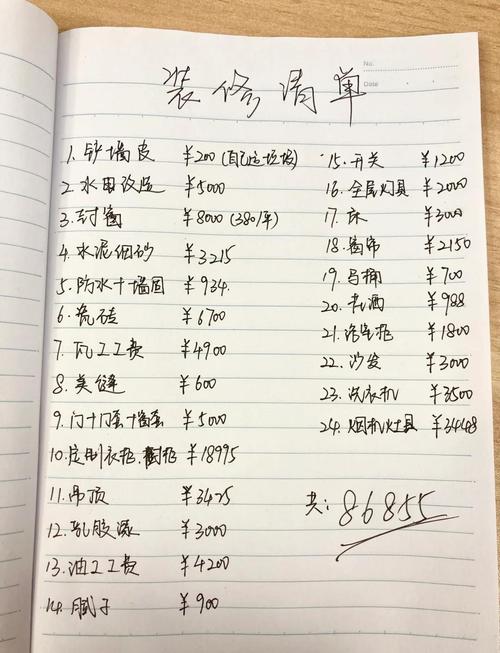 No.
Date
装修清单
1. 铲墙皮 ¥200 (自己运垃圾)
2. 水电改造 ¥5000
3. 封窗 ¥8000 (380/平)
4. 水泥细砂 ¥3215
5. 防水+墙固 ¥934.
6. 瓷砖 ¥6700
7. 瓦工工费 ¥4900
8. 美缝 ¥600
9. 门+门套+窗套 ¥5000
10. 定制衣柜.橱柜 ¥18995
11. 吊顶 ¥3425
12. 乳胶漆 ¥3000
13. 油工工费 ¥4200
14. 腻子 ¥900
15. 开关 ¥1200
16. 全屋灯具 ¥2000
17. 床 ¥3000
18. 窗帘 ¥2150
19. 马桶 ¥700
20. 花洒 ¥988
21. 浴室柜 ¥1800
22. 沙发 ¥3000
23. 洗衣机 ¥3500
24. 烟机灶具 ¥3448
共: 86855